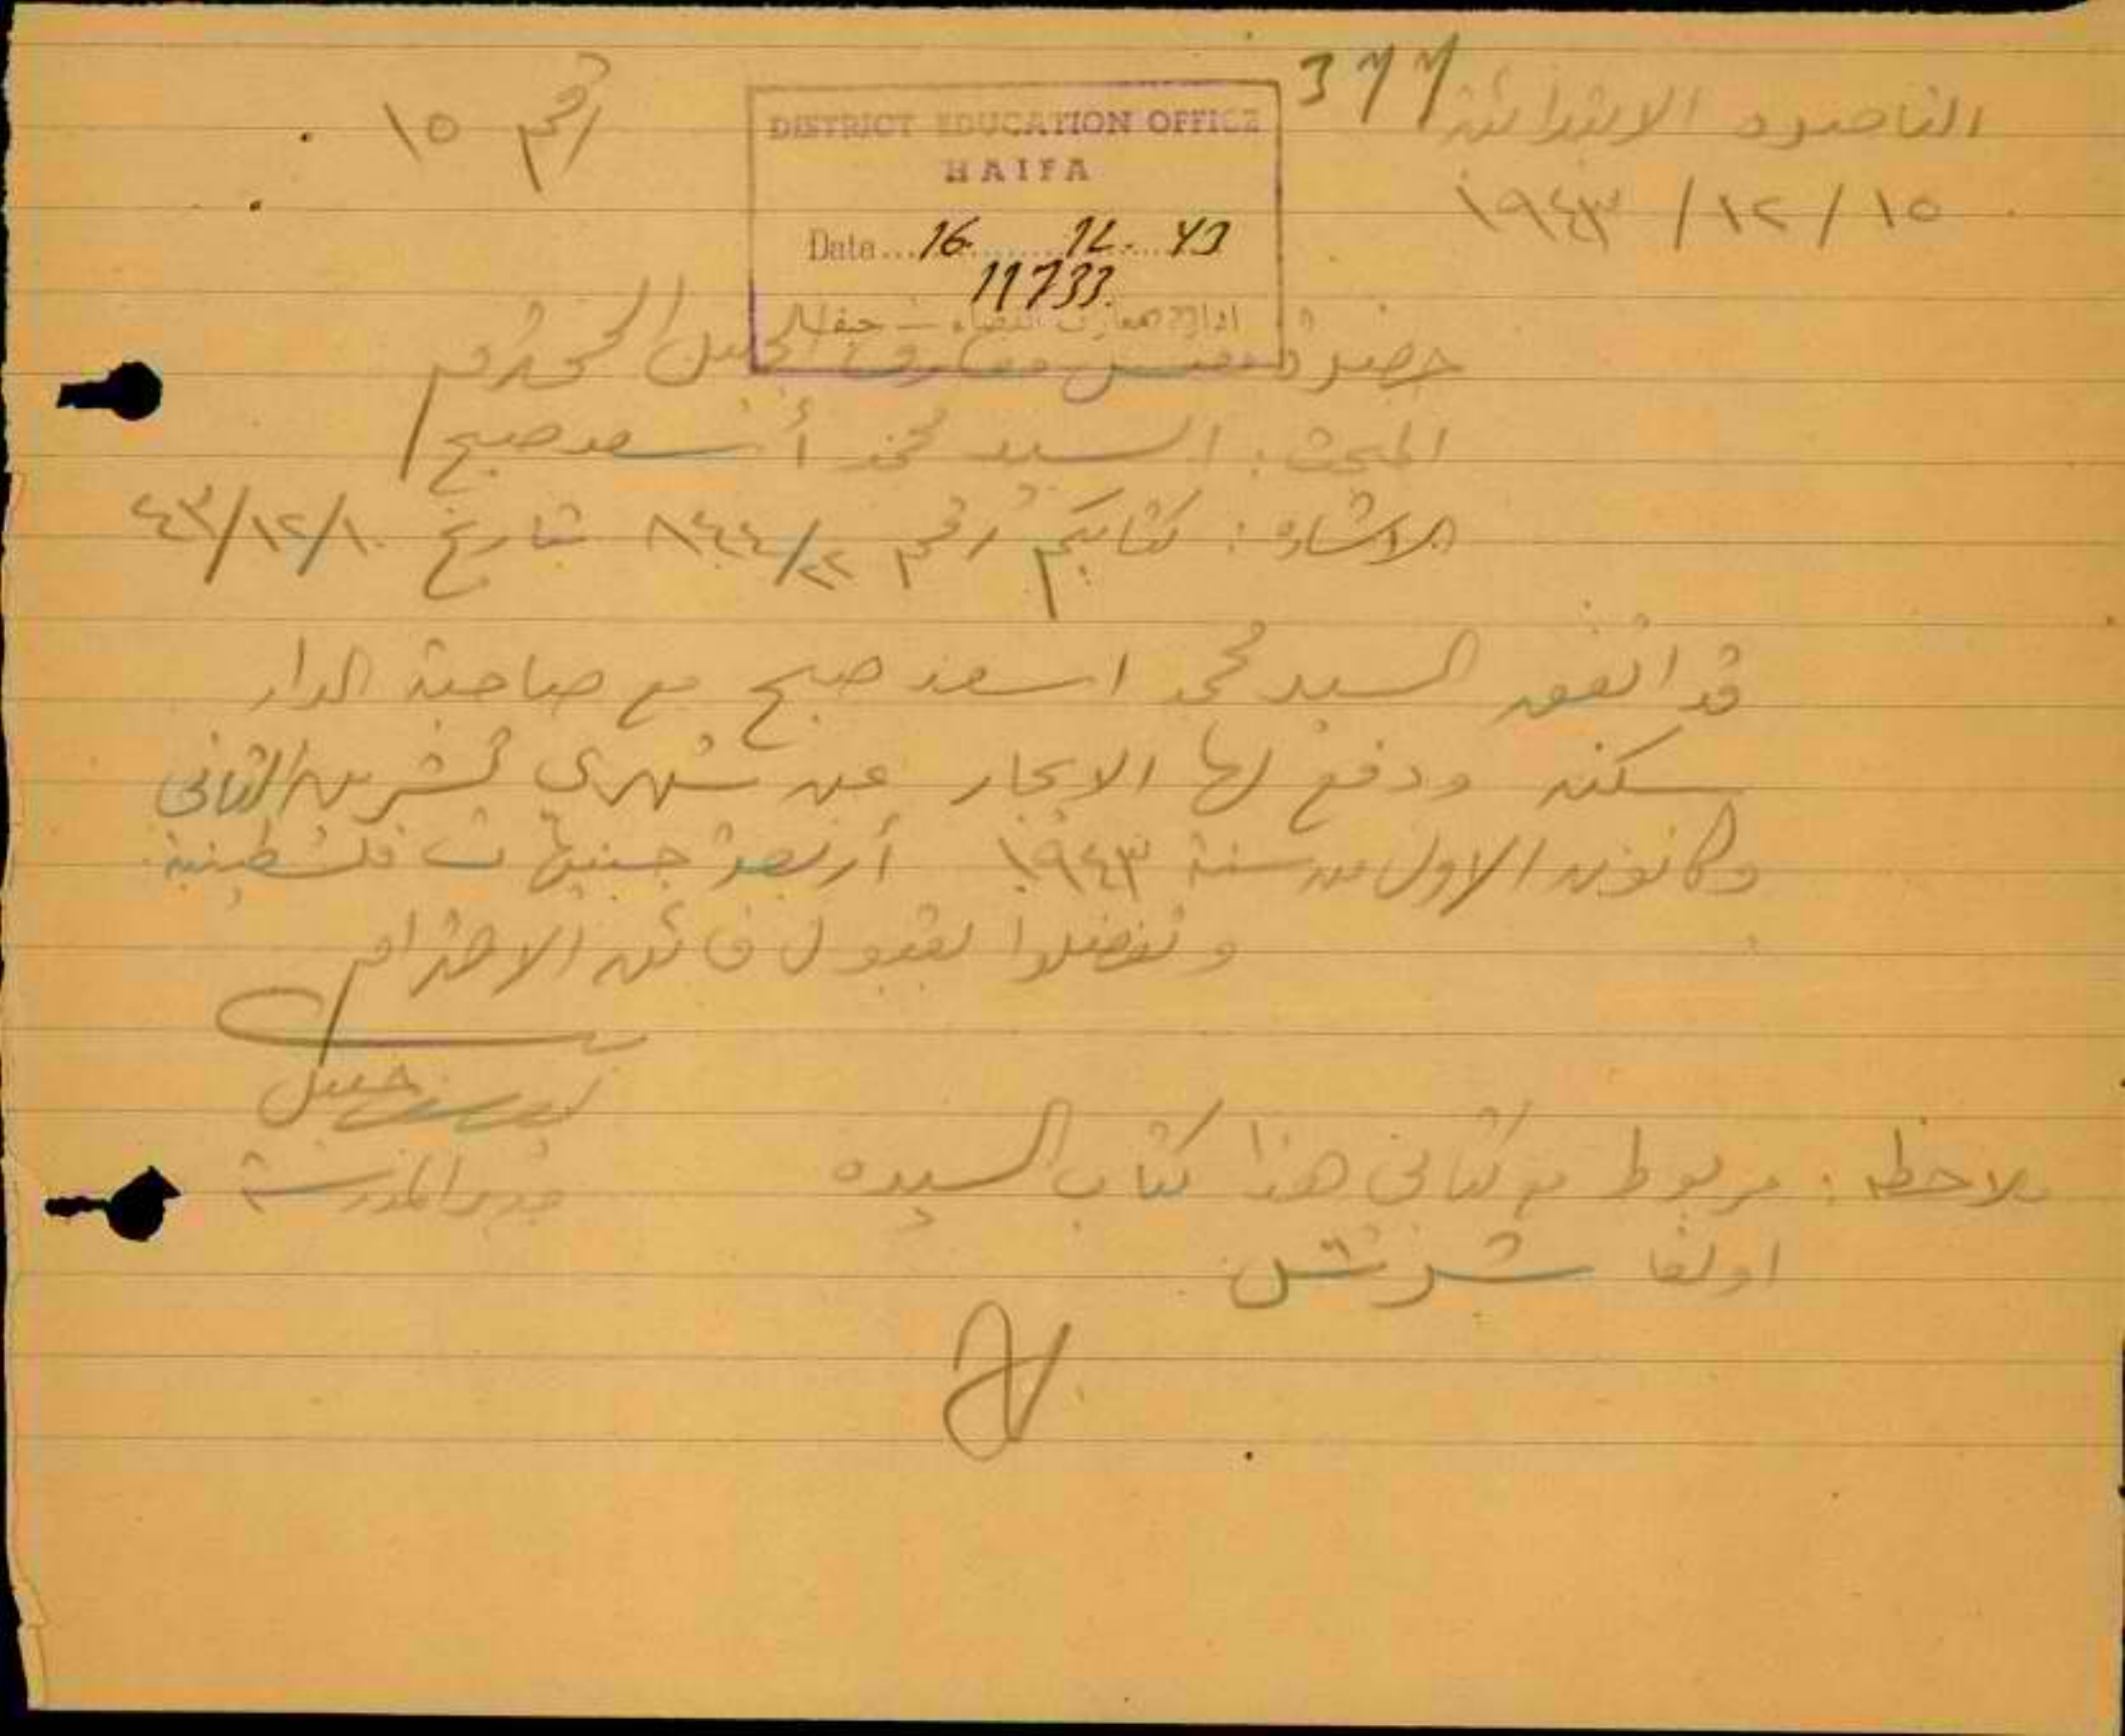 الناصره الابتدائية 377
رقم ١٥
١٥ / ١٢ / ١٩٤٣
DISTRICT EDUCATION OFFICE
HAIFA
Date... 16. 12. 43
11733.
ادارة معارف القضاء - حيفا
حضرة مفتش معارف الجليل المحترم
المبحث : السيد محمد أسعد صبح
الاشاره : كتابكم رقم ٨٤٤/٢٢ تاريخ ٤٣/١٢/١٠
قد اتفق السيد محمد اسعد صبح مع صاحبة الدار
سكنه ودفع لها الايجار عن شهري تشرين الثاني
وكانون الاول من سنة ١٩٤٣ أربعة جنيهات فلسطينية
وتفضلوا بقبول فائق الاحترام
خليل
مدير المدرسة
ملاحظه : مربوط مع كتابي هذا كتاب السيده
اولغا